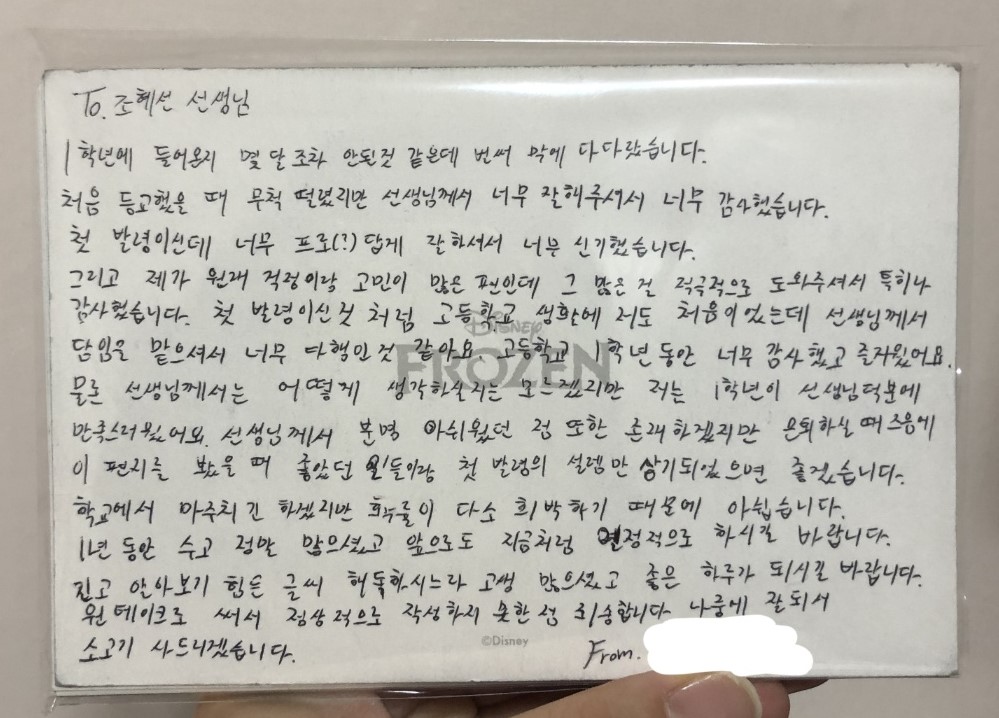 To.조혜선 선생님
1학년에 들어온지 몇 달 조차 안된것 같은데 벌써 막에 다다랐습니다.
처음 등교했을 때 무척 떨렸지만 선생님께서 너무 잘해주셔서 너무 감사했습니다.
첫 발령이신데 너무 프로(?)답게 잘하셔서 너무 신기했습니다.
그리고 제가 원래 걱정이랑 고민이 많은 편인데 그 많은 걸 적극적으로 도와주셔서 특히나
감사했습니다. 첫 발령이신것 처럼 고등학교 생활에 저도 처음이었는데 선생님께서
담임을 맡으셔서 너무 다행인것 같아요. 고등학교 1학년동안 너무 감사했고 즐거웠어요.
DISNEY
FROZEN
물론 선생님께서는 어떻게 생각하실지는 모르겠지만 저는 1학년이 선생님덕분에
만족스러웠어요. 선생님께서 분명 아쉬웠던 점 또한 존재하겠지만 은퇴하실 때 즈음에
이 편지를 봤을 때 좋았던 일들이랑 첫 발령의 설렘만 상기되었으면 좋겠습니다.
학교에서 마주치긴 하겠지만 확률이 다소 희박하기 때문에 아쉽습니다.
1년 동안 수고 정말 많으셨고 앞으로도 지금처럼 열정적으로 하시길 바랍니다.
길고 알아보기 힘든 글씨 해독하시느라 고생 많으셨고 좋은 하루가 되시길 바랍니다.
원테이크로 써서 정상적으로 작성하지 못한점 죄송합니다 나중에 잘되서
소고기 사드리겠습니다.
©Disney
From.